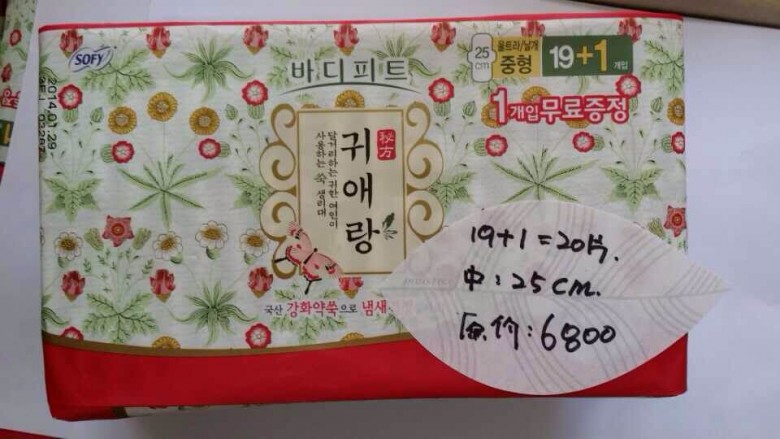 SOFY
바디피트
25
cm
울트라/날개
중형
19+1 개입
1개입무료증정
2014.01.29
秘方
귀애랑
달거리하는 귀한 여인이
사용하는 쑥 생리대
국산 강화약쑥으로 냄새
19+1=20片.
中:25cm.
原价:6800